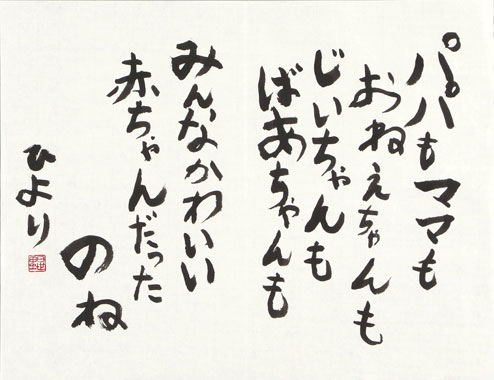 パパもママも
おねえちゃんも
じいちゃんも
ばあちゃんも
みんなかわいい
赤ちゃんだった
のね
ひより